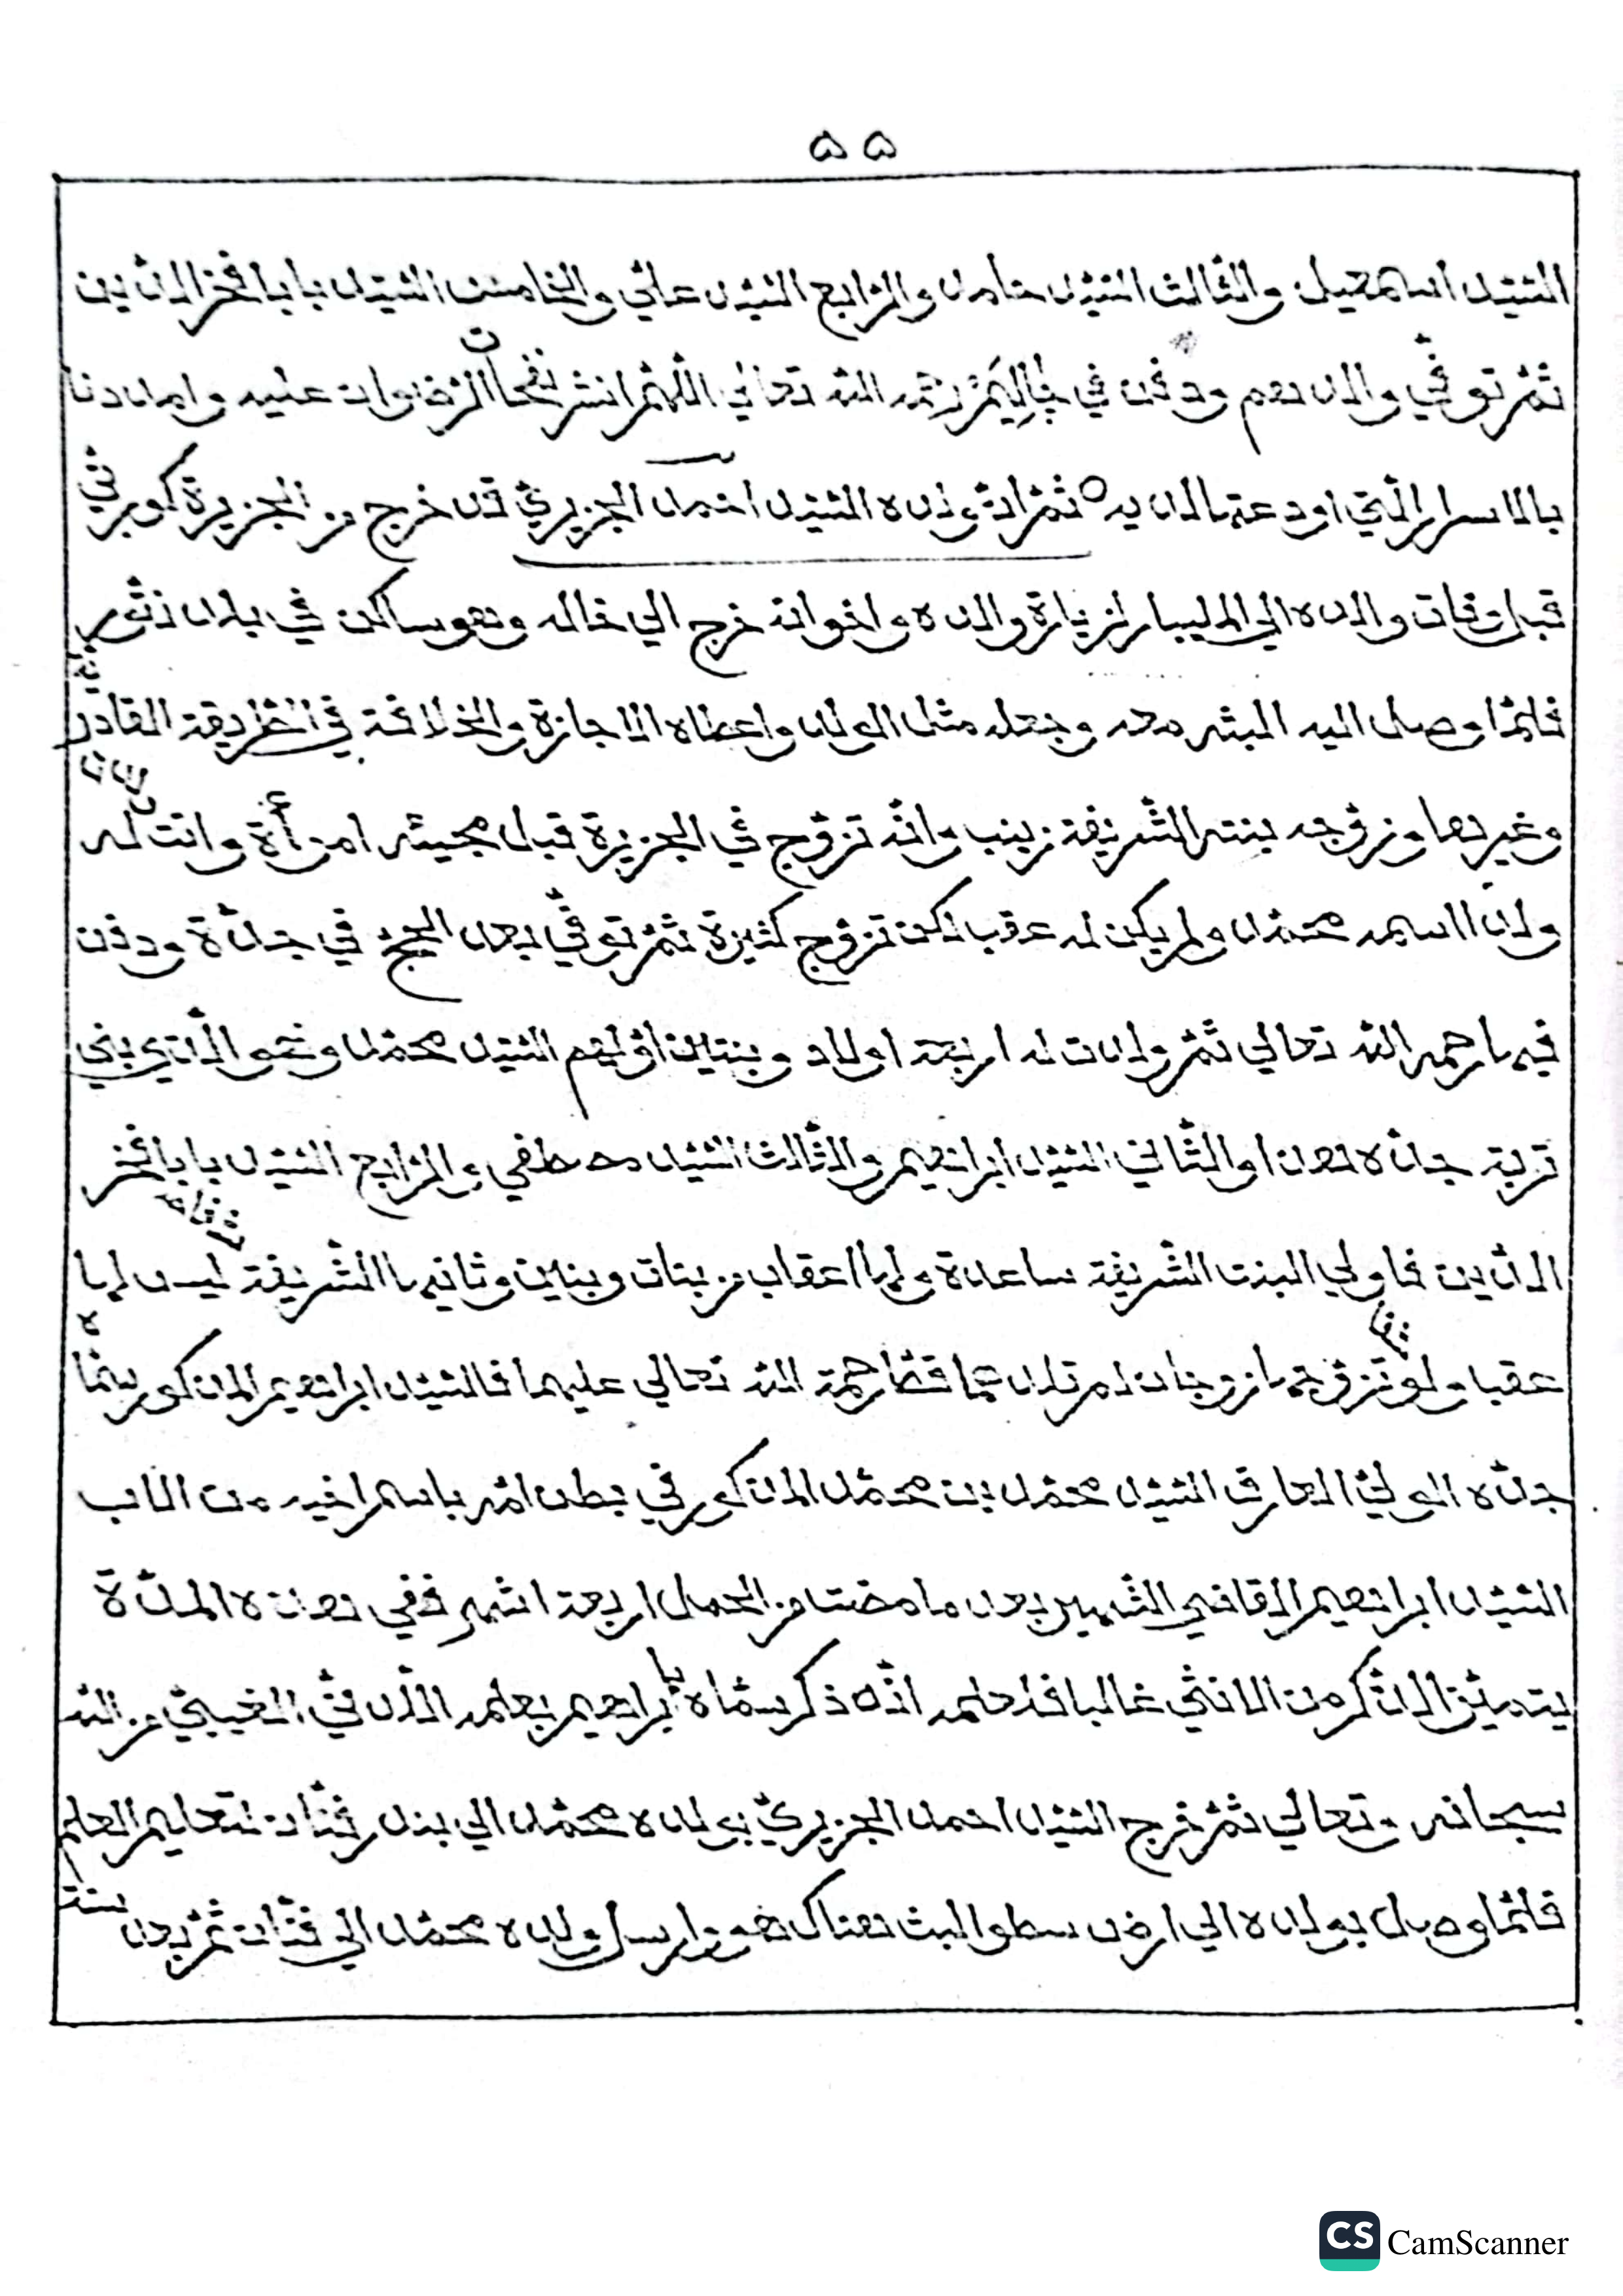 ٥٥
السّيّد اسمعيل والثّالث السّيّد حامد والرّابع السّيّد علي والخامس السّيّد بابا فخر الدّين
ثمّ توفّي والدهم ودفن في رحمه الله تعالي اللّهمّ انشر نفحات الرّضوان عليه وامددنا
بالاسرار الّتي اودعتها لديه ثمّ انّ ولده السّيّد احمد الجزيريّ قد خرج من الجزيرة كوبرتي
قبل وفات والده الي المليبار لزيارة والده واخوانه خرج الي خاله وهو ساكن في بلد
فلمّا وصل اليه المبشر معه وجعله مثل الولد واعطاه الاجازة والخلافة في الطّريقة القادريّة
وغيرها وزوّجه بنته الشّريفة زينب وانّه تزوّج في الجزيرة قبل مجيئه امرأة وانت له
ولدا اسمه محمّد ولم يكن له عقب لكن تزوّج كثيرة ثمّ توفّي بعد الحجّ في جدّة ودفن
فيها رحمه الله تعالي ثمّ ولدت له اربعة اولاد وبنتين اوّلهم السّيّد محمّد وهو الّذي بني
تربة جدّه هذا والثّاني السّيّد ابراهيم والثّالث السّيّد مصطفي والرّابع السّيّد بابا فخر
الدّين فاولي البنت الشّريفة ساعدة ولها اعقاب من بنات وبنين وثانيها الشّريفة ليس لها
عقبا ولو تزوّجها زوجان لم تلد عما قطّ رحمة الله تعالي عليهما فالسّيّد ابراهيم المذكور سمّاه
جدّه الوليّ العارف السّيّد محمّد بن محمّد المذكور في بطن امّه باسم اخيه من الاب
السّيّد ابراهيم القاضي الشّهير بعد ما مضت من الحمل اربعة اشهر ففي هذه المدّة
يتميّز الذّكر من الانثي غالبا فلعلمه انّه ذكر سمّاه بابراهيم بعلمه اللّدنّيّ الغيبيّ من الله
سبحانه وتعالي ثمّ خرج السّيّد احمد الجزيريّ بولده محمّد الي بندر فنّان لتعليم العلم
فلمّا وصل بولده الي ارض سطوا لبث هناك هو وارسل ولده محمّد الي فنّان ثمّ بعد سنة
CS CamScanner